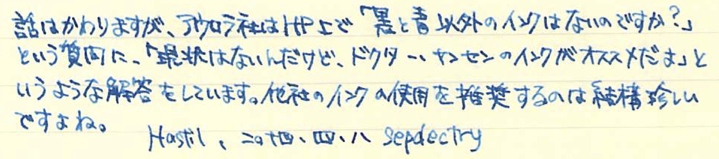 話はかわりますが、アウロラ社はHP上で「黒と青以外のインクはないのですか?」
という質問に、「現状はないんだけど、ドクター・ヤンセンのインクがオススメだよ」と
いうような解答をしています。他社のインクの使用を推奨するのは結構珍しい
ですよね。 Hastil、二〇十四、四、八 sepdectry